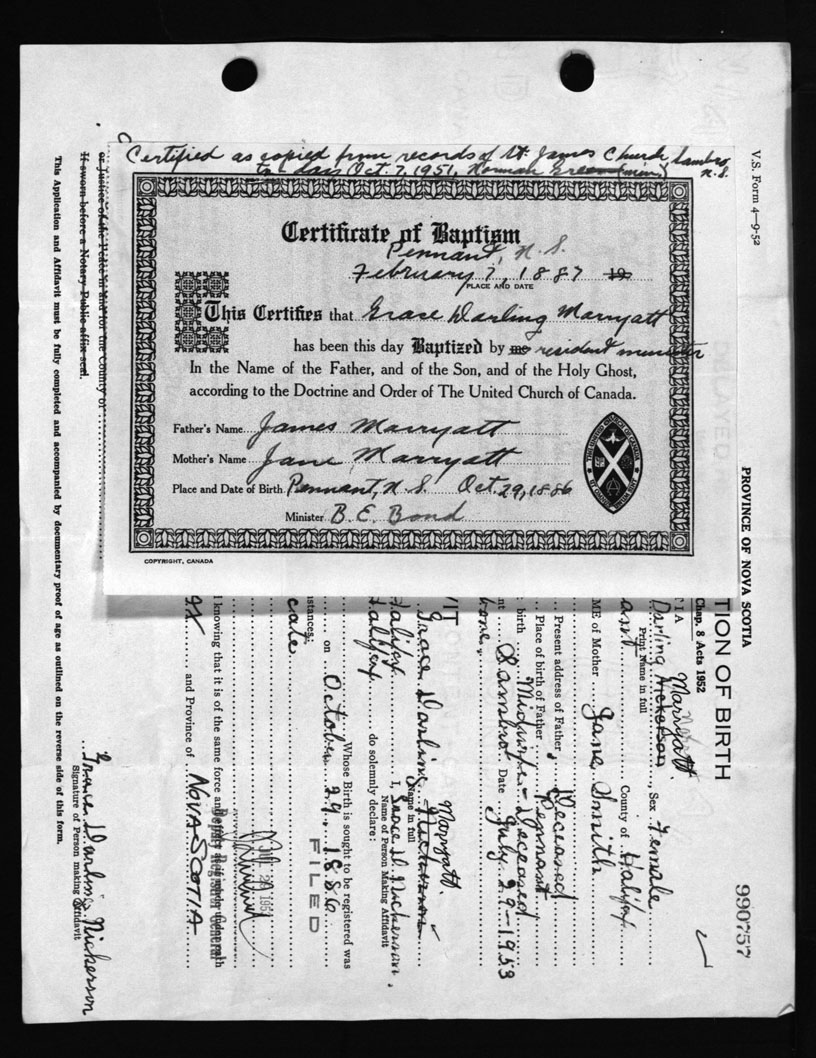 Certified as copied from records of St. James Church, Sambro
to-day Oct. 7, 1951, Norman (min) N.S.
Certificate of Baptism
Pennant, N.S.
February 7, 1887 19
PLACE AND DATE
This Certifies that Grace Darling Marryatt
has been this day Baptized by me resident minister
In the Name of the Father, and of the Son, and of the Holy Ghost,
according to the Doctrine and Order of The United Church of Canada.
Father's Name James Marryatt
Mother's Name Jane Marryatt
Place and Date of Birth Pennant, N.S. Oct. 29, 1886
Minister B. E. Bond
COPYRIGHT, CANADA
V.S. Form 4—9-52
PROVINCE OF NOVA SCOTIA
990757
TION OF BIRTH
TIA Chap. 8 Acts 1952
Marryatt
Darling Nickerson Sex Female
Print Name in full
County of Halifax
ME of Mother Jane Smith
Present address of Father Deceased
Place of birth of Father Pennant
birth Midwife - Deceased
nt Sambro Date July 29-1953
bone.
VIT
Marryatt
Grace Darling Nickerson
Name in full
Halifax I, Grace D. Nickerson,
Name of Person Making Affidavit
Halifax do solemnly declare:
Whose Birth is sought to be registered was
on October 29, 1886
FILED
stances:
cate
I knowing that it is of the same force and
Deputy Registrar General
and Province of NOVA SCOTIA
Grace Darling Nickerson
Signature of Person making Affidavit
or Justice of the Peace in and for the County of
If sworn before a Notary Public affix seal.
This Application and Affidavit must be fully completed and accompanied by documentary proof of age as outlined on the reverse side of this form.